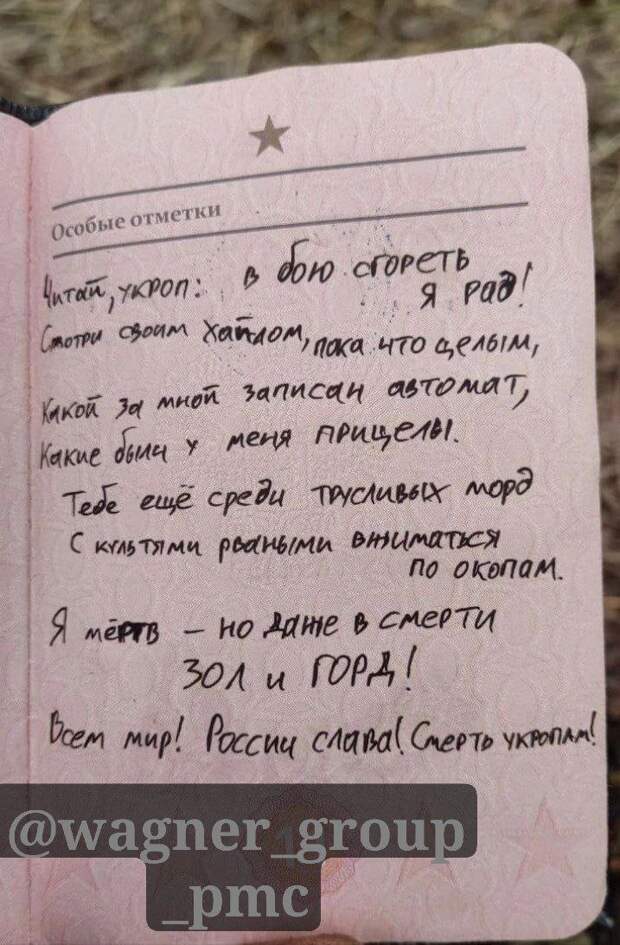 Особые отметки
Читай, укроп: в бою сгореть
я рад!
Смотри своим хайлом, пока что целым,
Какой за мной записан автомат,
Какие были у меня прицелы.
Тебе ещё среди трусливых морд
С культями рваными вжиматься
по окопам.
Я мёртв – но даже в смерти
ЗОЛ и ГОРД!
Всем мир! России слава! Смерть укропам!
@wagner_group
_pmc